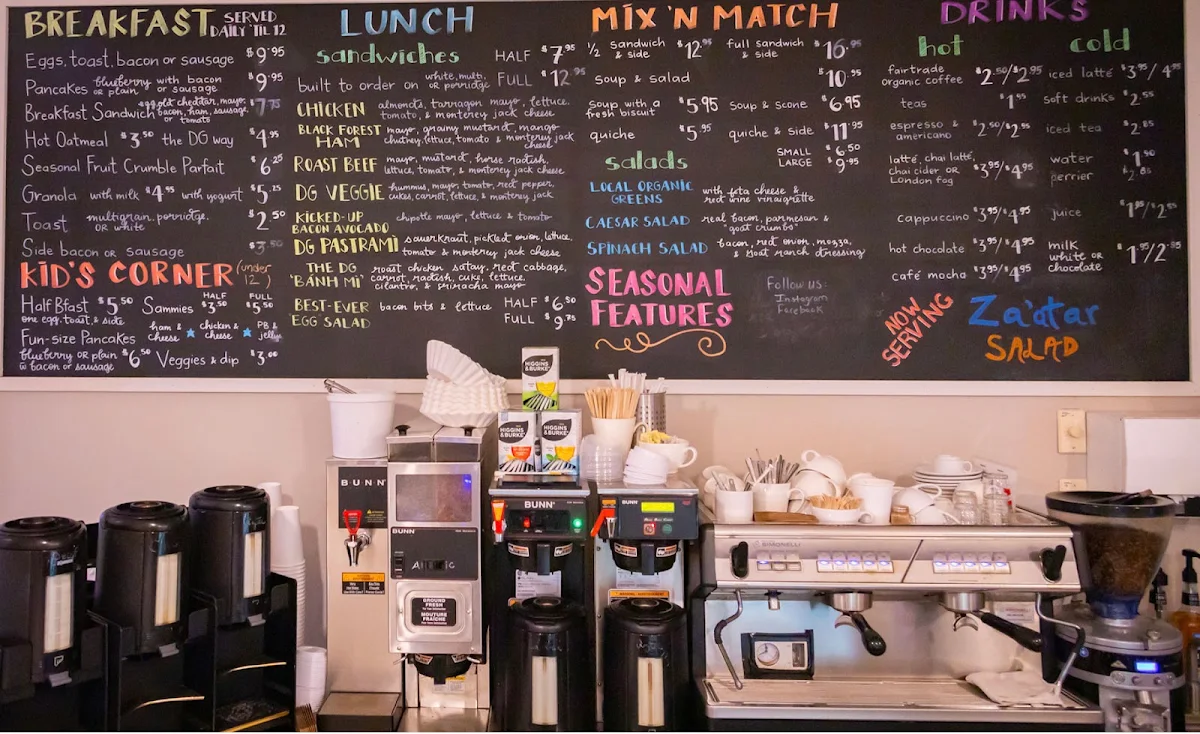 BREAKFAST SERVED DAILY 'TIL 12
Eggs, toast, bacon or sausage $9.95
Pancakes blueberry or plain with bacon or sausage $9.95
Breakfast Sandwich egg, old cheddar, mayo, bacon, ham, sausage, or tomato $7.75
Hot Oatmeal $3.50 the DG way $4.95
Seasonal Fruit Crumble Parfait $6.25
Granola with milk $4.95 with yogurt $5.25
Toast multigrain, porridge, or white $2.50
Side bacon or sausage $3.50
KID'S CORNER (under 12)
Half Bfast $5.50 one egg, toast, & side
Sammies HALF $3.50 FULL $5.50
ham & cheese ★ chicken & cheese ★ PB & jelly
Fun-size Pancakes blueberry or plain w bacon or sausage $6.50
Veggies & dip $3.00
LUNCH
sandwiches HALF $7.95
built to order on white, multi, or porridge FULL $12.95
CHICKEN almonds, tarragon mayo, lettuce, tomato, & monterey jack cheese
BLACK FOREST HAM mayo, grainy mustard, mango chutney, lettuce, tomato & monterey jack cheese
ROAST BEEF mayo, mustard, horse radish, lettuce, tomato, & monterey jack cheese
DG VEGGIE hummus, mayo, tomato, red pepper, cukes, carrot, lettuce, & monterey jack
KICKED-UP BACON AVOCADO chipotle mayo, lettuce & tomato
DG PASTRAMI sauerkraut, pickled onion, lettuce, tomato & monterey jack cheese
THE DG 'BÁNH MÌ' roast chicken satay, red cabbage, carrot, radish, cuke, lettuce, cilantro, & sriracha mayo
BEST-EVER EGG SALAD bacon bits & lettuce HALF $6.50
FULL $9.75
MIX 'N MATCH
1/2 sandwich & side $12.95 full sandwich & side $16.95
soup & salad $10.95
soup with a fresh biscuit $5.95 soup & scone $6.95
quiche $5.95 quiche & side $11.95
salads SMALL $6.50
LARGE $9.95
LOCAL ORGANIC GREENS with feta cheese & red wine vinaigrette
CAESAR SALAD real bacon, parmesan & "goat crumbs"
SPINACH SALAD bacon, red onion, mozza, & goat ranch dressing
SEASONAL FEATURES
Follow us:
Instagram
Facebook
DRINKS
hot
fair trade organic coffee $2.50/$2.95
teas $1.95
espresso & americano $2.50/$2.95
latté, chai latté, chai cider or London fog $3.95/$4.95
cappuccino $3.95/$4.95
hot chocolate $3.95/$4.95
café mocha $3.95/$4.95
cold
iced latté $3.95/4.95
soft drinks $2.55
iced tea $2.85
water $1.50
perrier $2.85
juice $1.95/$2.95
milk white or chocolate $1.95/2.85
NOW SERVING
Za'atar
SALAD
HIGGINS & BURKE
HIGGINS & BURKE
HIGGINS & BURKE
BUNN
BUNN
BUNN
BUNN
GROUND FRESH
MOUTURE FRAÎCHE
SIMONELLI